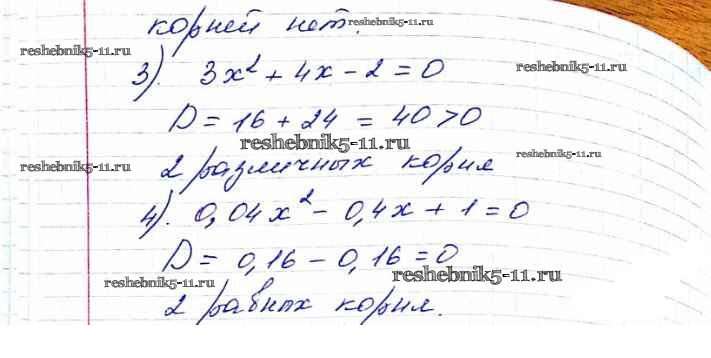 корней нет.
reshebnik5-11.ru
reshebnik5-11.ru
3). 3x² + 4x - 2 = 0
reshebnik5-11.ru
D = 16 + 24 = 40 > 0
reshebnik5-11.ru
reshebnik5-11.ru
2 различных корня
reshebnik5-11.ru
4). 0,04x² - 0,4x + 1 = 0
D = 0,16 - 0,16 = 0
reshebnik5-11.ru
reshebnik5-11.ru
2 равных корня.